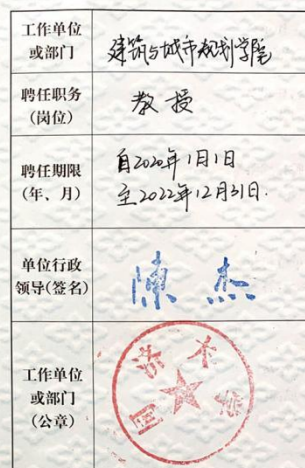 工作单位
或部门
建筑与城市规划学院
聘任职务
(岗位)
教授
聘任期限
(年、月)
自2020年1月1日
至2022年12月31日.
单位行政
领导(签名)
陳杰
工作单位
或部门
(公章)
同济大学